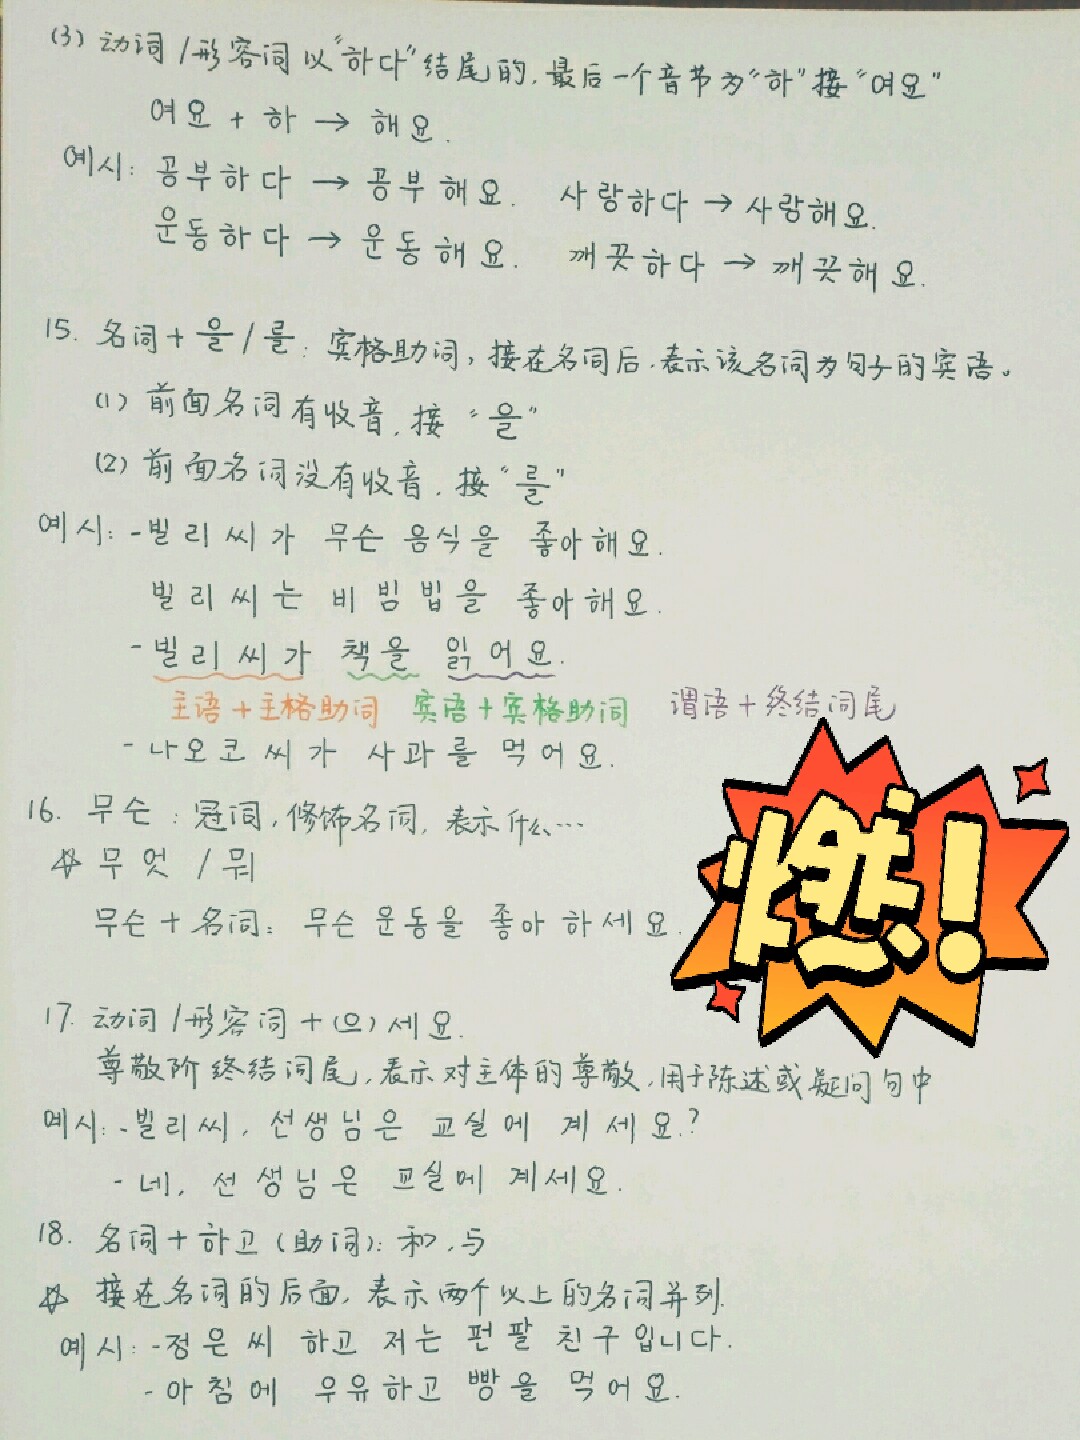 (3) 动词/形容词以“하다”结尾的, 最后一个音节为“하”接“여요”
여요 + 하 → 해요.
예시: 공부하다 → 공부해요. 사랑하다 → 사랑해요.
운동하다 → 운동해요. 깨끗하다 → 깨끗해요.
15. 名词 + 을/를: 宾格助词, 接在名词后, 表示该名词为句子的宾语。
(1) 前面名词有收音, 接“을”
(2) 前面名词没有收音, 接“를”
예시: -빌리씨가 무슨 음식을 좋아해요.
빌리씨는 비빔밥을 좋아해요.
-빌리씨가 책을 읽어요.
主语+主格助词 宾语+宾格助词 谓语+终结词尾
-나오코씨가 사과를 먹어요.
16. 무슨: 冠词, 修饰名词, 表示什么…
☆ 무엇 / 뭐
무슨 + 名词: 무슨 운동을 좋아하세요.
燃!
17. 动词/形容词 + (으)세요.
尊敬阶终结词尾, 表示对主体的尊敬, 用于陈述或疑问句中
예시: -빌리씨, 선생님은 교실에 계세요?
-네, 선생님은 교실에 계세요.
18. 名词 + 하고 (助词): 和, 与
☆ 接在名词的后面, 表示两个以上的名词并列.
예시: -정은씨 하고 저는 펀팔 친구입니다.
-아침에 우유하고 빵을 먹어요.